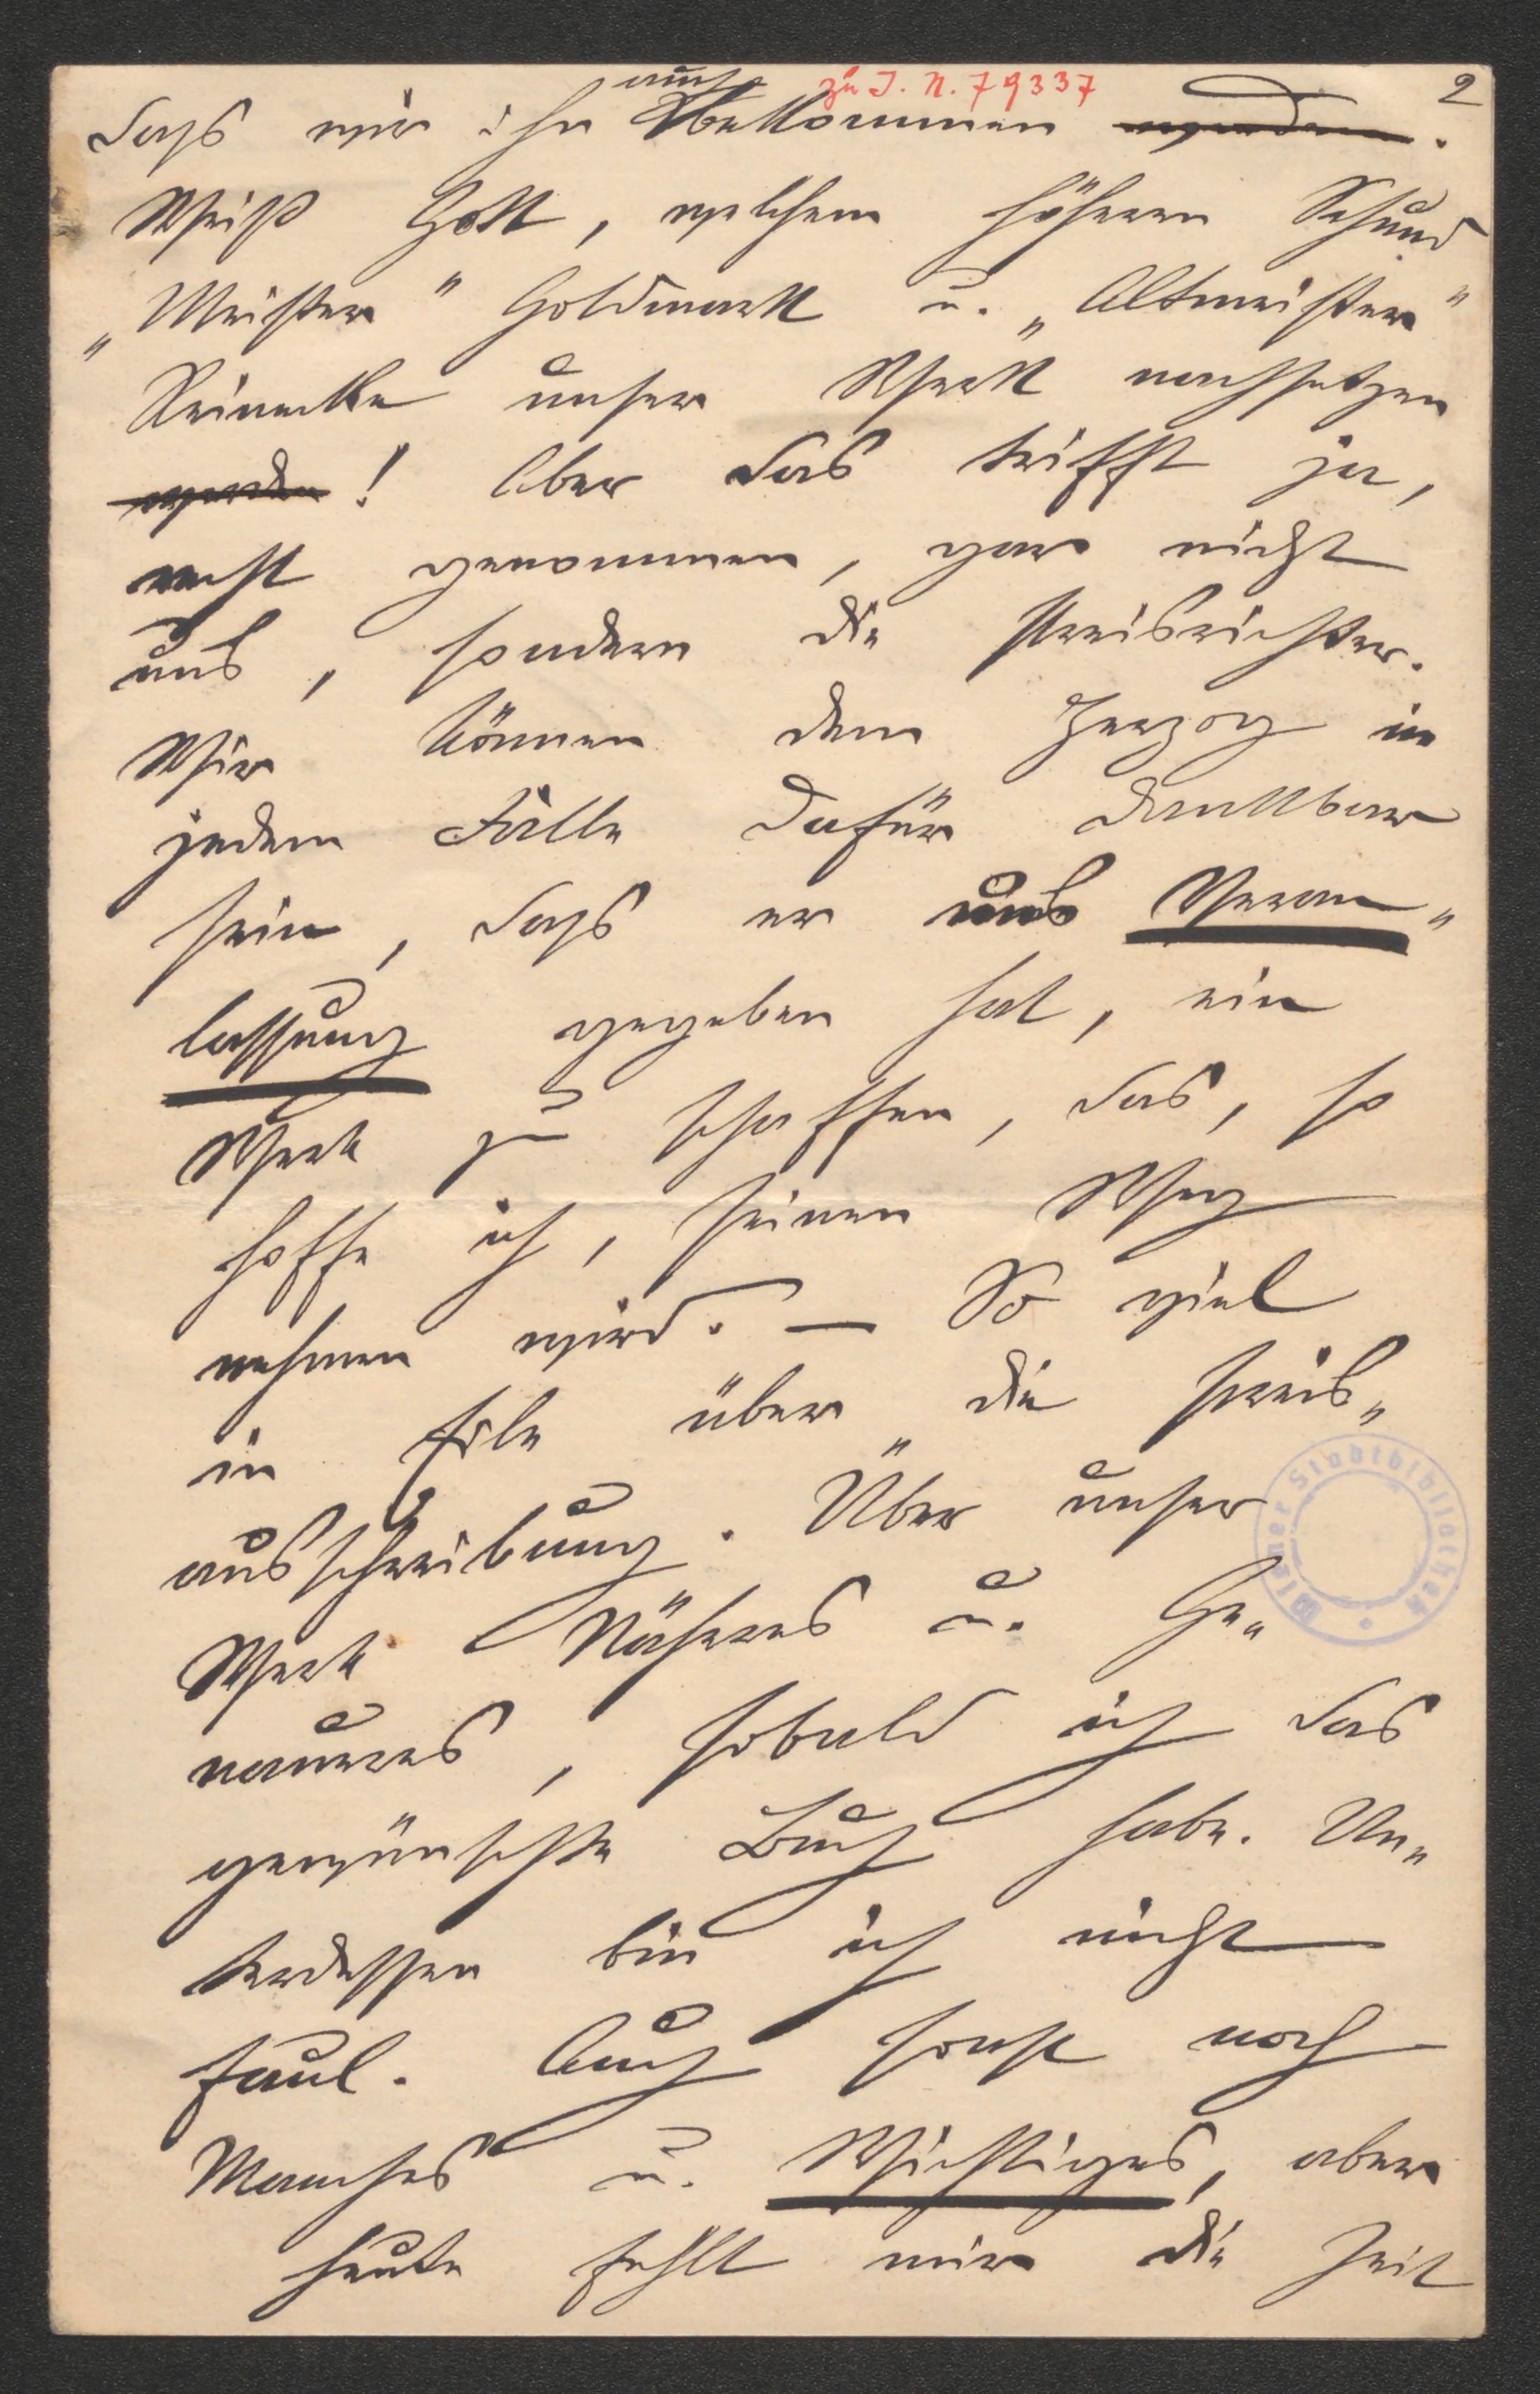 auch zu I. N. 79337 2
dass wir ihn bekommen werden.
Weiß Gott, welchem höheren Schund
„Meister" Goldmark u. „Altmeister"
Reinecke unser Werk nachsetzen
werden! Aber das trifft ja,
recht genommen, gar nicht
uns, sondern die Preisrichter.
Wir können dem Herzog in
jedem Falle dafür dankbar
sein, dass er uns Veran„
lassung gegeben hat, ein
Werk zu schaffen, das, so
hoffe ich, seinen Weg
nehmen wird. — So viel
in Eile über die Preis„
ausschreibung. Über unser
Werk Näheres u. Ge„
naueres, sobald ich das
gewünschte Buch habe. Un„
terdessen bin ich nicht
faul. Auch sonst noch
Manches u. Wichtiges, aber
heute fehlt mir die Zeit
Wiener Stadtbibliothek